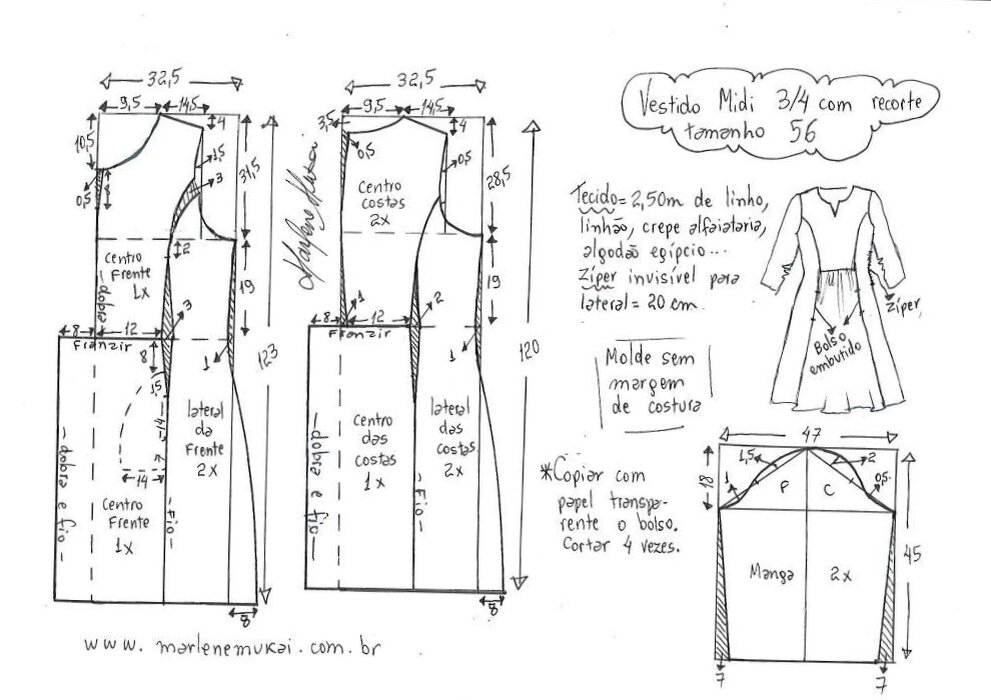 Vestido Midi 3/4 com recorte
tamanho 56
32,5
9,5
14,5
4
10,5
1,5
3
31,5
0,5
8
2
Centro
Frente
1x
dobra
19
3
8
12
Franzir
8
1
1,5
14
14
123
lateral
da
Frente
2x
Centro
Frente
1x
dobra e fio
Fio
8
32,5
9,5
14,5
3,5
4
0,5
0,5
28,5
Centro
costas
2x
Marlene Mukai
19
1
2
8
12
Franzir
1
120
Centro
das
costas
1x
lateral
das
costas
2x
dobra e fio
Fio
8
Tecido = 2,50m de linho,
linhão, crepe alfaiataria,
algodão egípcio...
Zíper invisível para
lateral = 20 cm.
Zíper,
Bolso
embutido
Molde sem
margem
de costura
*Copiar com
papel transpa-
rente o bolso.
Cortar 4 vezes.
47
1,5
2
18
1
F
C
0,5
45
Manga 2x
7
7
www.marlenemukai.com.br